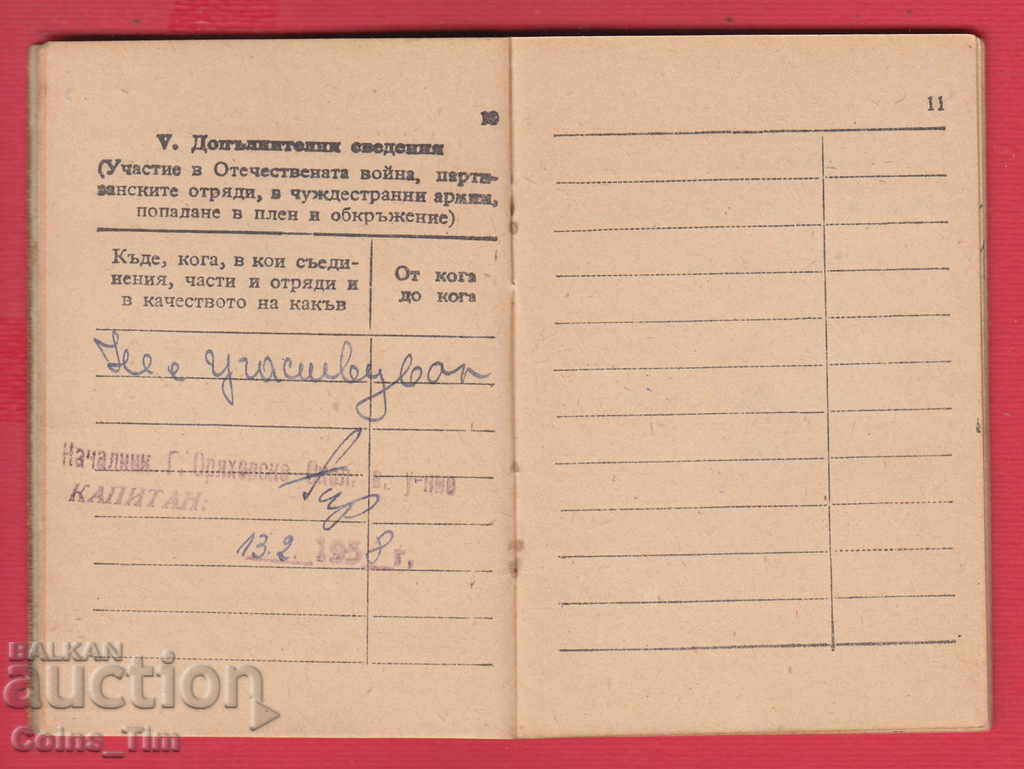 10
V. Допълнителни сведения
(Участие в Отечествената война, парти-
занските отряди, в чуждестранни армии,
попадане в плен и обкръжение)
Къде, кога, в кои съеди-
нения, части и отряди и
в качеството на какъв
От кога
до кога
Не е участвувал
Началник Г. Оряховско окол. в. у-ние
КАПИТАН:
13.2. 1958 г.
11
BALKAN
auction
Coins_Tim